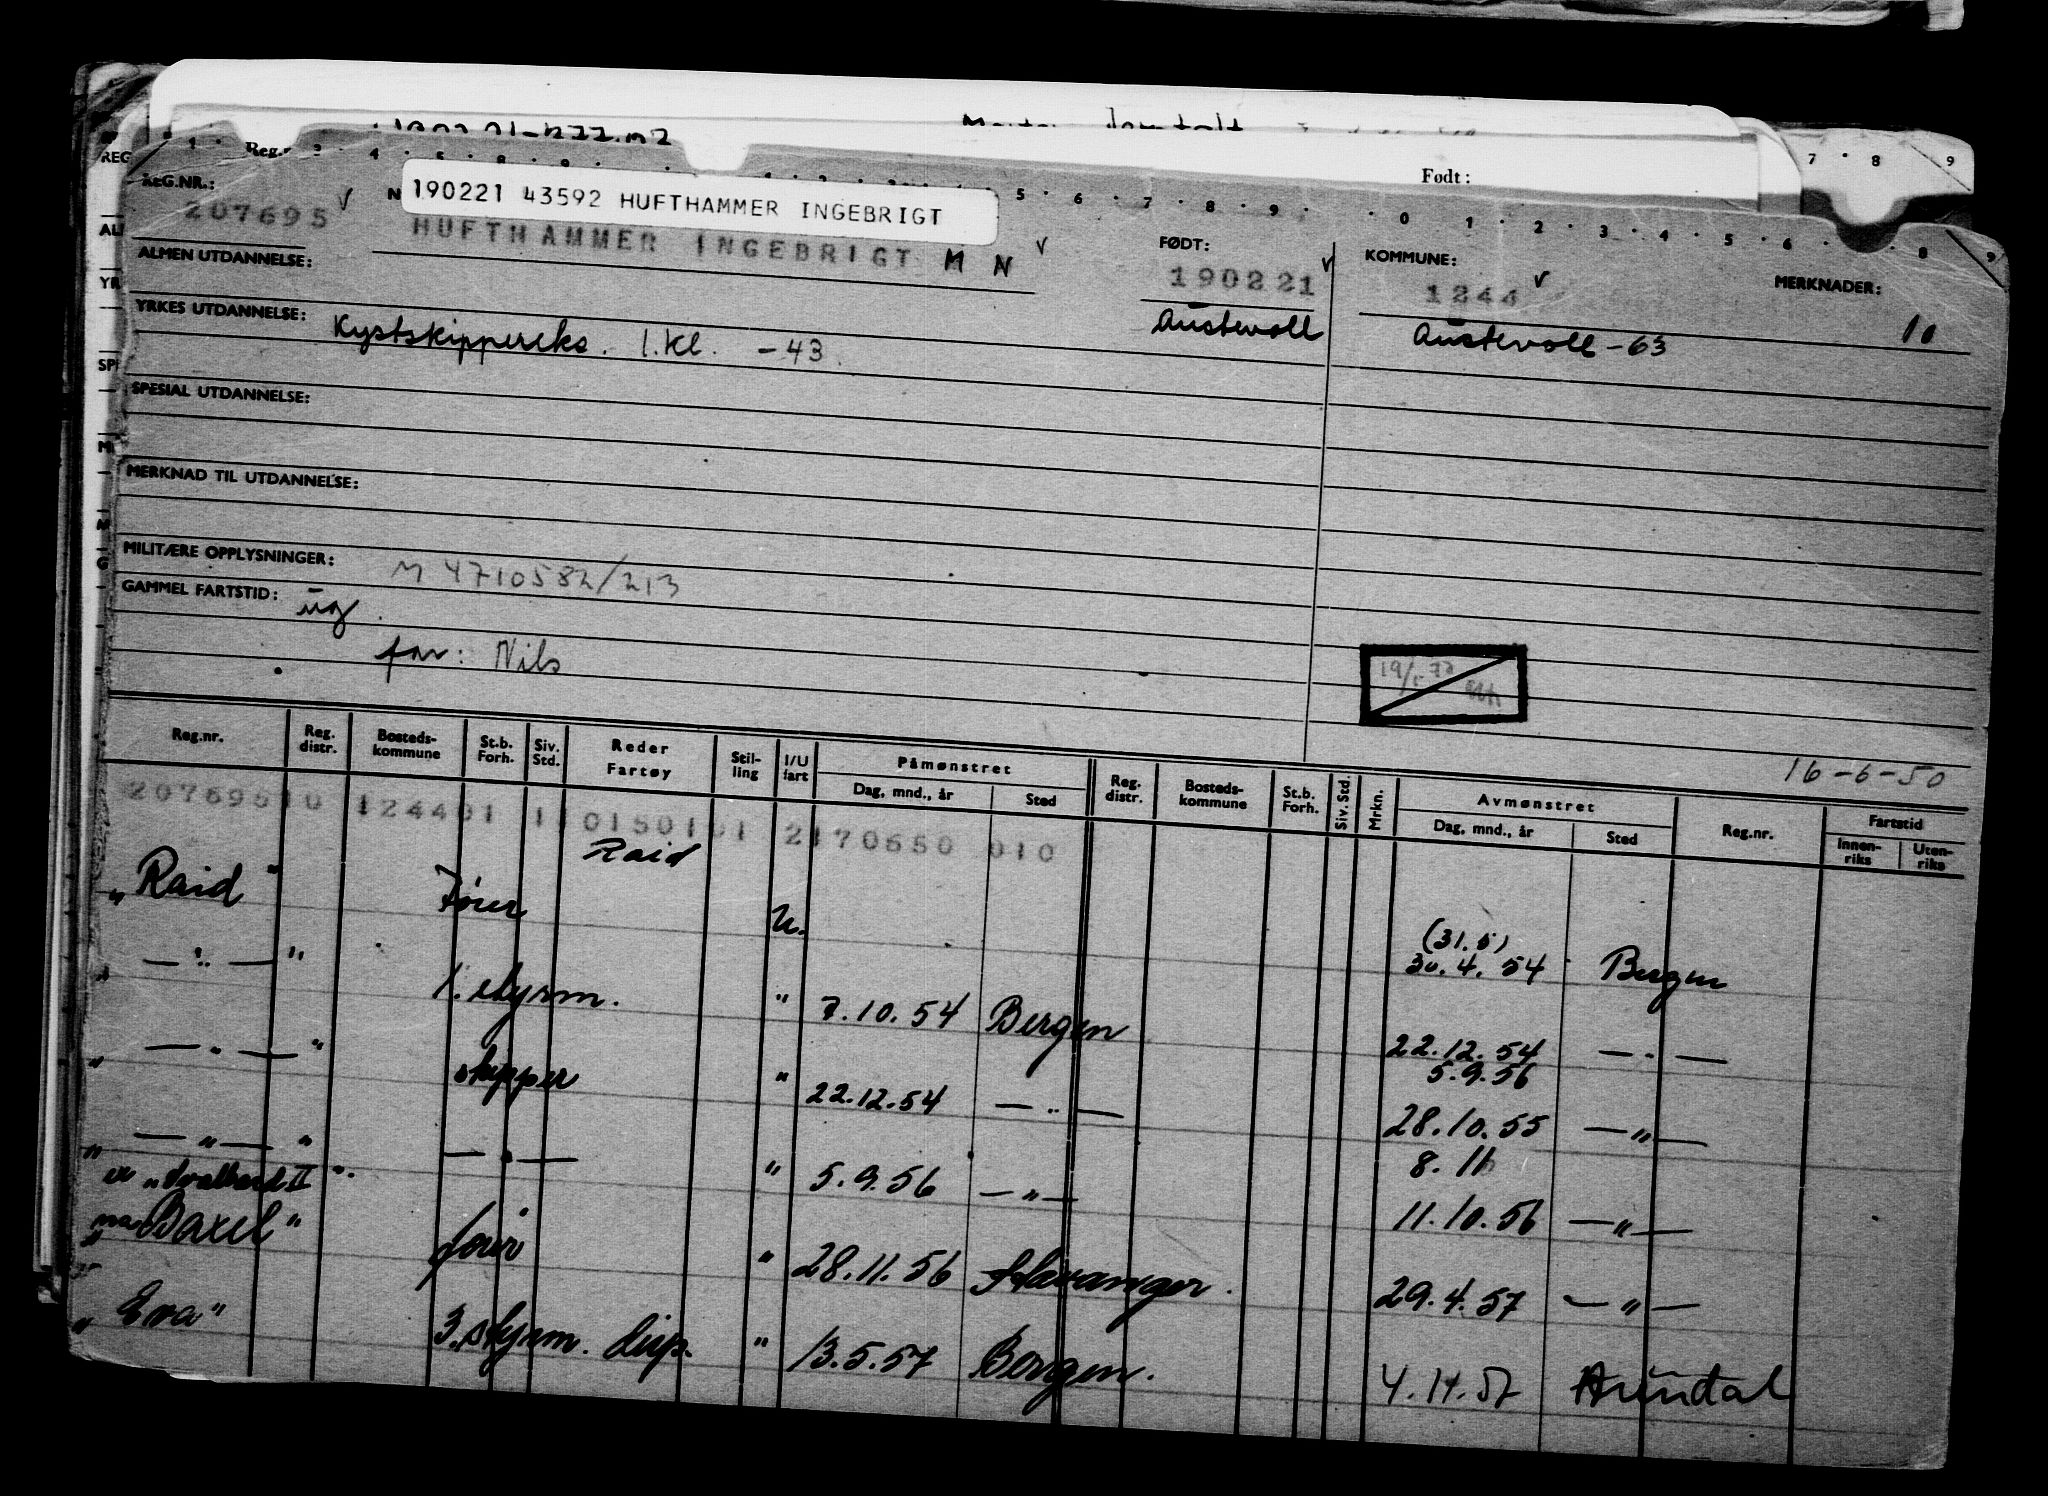 Reg.
Født:
190221 43592 HUFTHAMMER INGEBRIGT
REG.NR.:
207695
HUFTHAMMER INGEBRIGT M N
FØDT:
190221
KOMMUNE:
1244
MERKNADER:
10
ALMEN UTDANNELSE:
Austevoll
Austevoll -63
YRKES UTDANNELSE: Kystskippereks. 1.kl. -43.
SPESIAL UTDANNELSE:
MERKNAD TIL UTDANNELSE:
MILITÆRE OPPLYSNINGER: M 4710582/213
GAMMEL FARTSTID:
far: Nils
16-6-50
Reg.nr. Reg. distr. Bosteds-kommune St.b. Forh. Siv. Std. Reder Fartøy Stil-ling I/U fart Påmønstret Dag, mnd., år Sted Reg. distr. Bosteds-kommune St.b. Forh. Siv. Std. Mrkn. Avmønstret Dag, mnd., år Sted Reg.nr. Fartstid Innen-riks Uten-riks
207695 10 124401 1 10150101 2170650 010
Raid
"Raid" Fører U. (31.5) 30.4.54 Bergen
" — " — " 1. styrm. " 7.10.54 Bergen 22.12.54 — " —
5.9.56
" — " — " skipper " 22.12.54 — " — 28.10.55 — " —
8.11
" — " — " — " — " 5.9.56 — " — 11.10.56 — " —
ex "Svalbard II".
"Baxel" fører " 28.11.56 Stavanger. 29.4.57 — " —
"Eva" 3.styrm. disp. " 13.5.57 Bergen. 4.11.57 Arendal